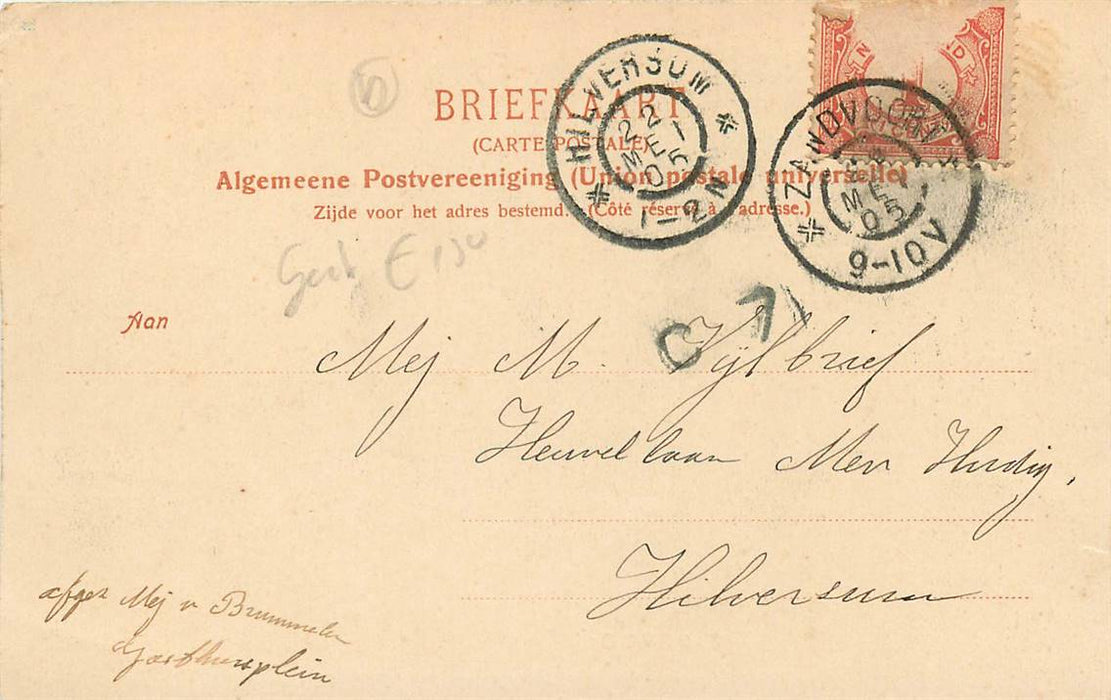 BRIEFKAART
(CARTE POSTALE)
Algemeene Postvereeniging (Union postale universelle)
Zijde voor het adres bestemd. (Côté réservé à l'adresse.)
HILVERSUM
22
MEI
05
1-2N
ZANDVOORT
MEI
05
9-10V
Aan
Mej M. Vijlbrief
Heuvellaan Mev Hudig,
Hilversum
afgez Mej v Brummelen